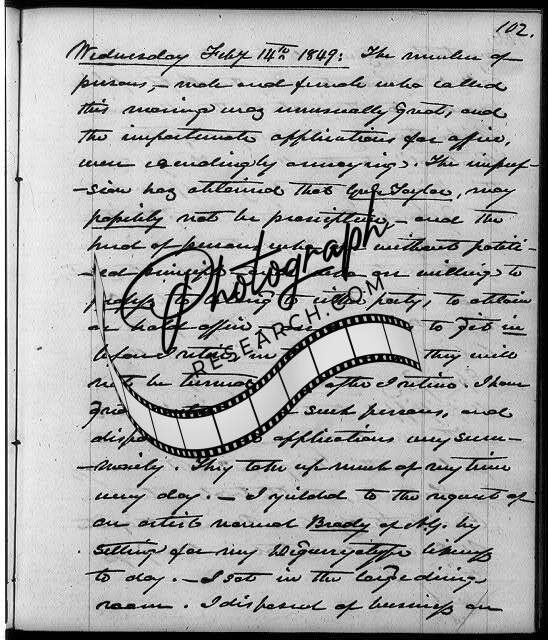 102.
Wednesday Feby 14th 1849: The number of
persons, - male and female who called
this morning was unusually great, and
the importunate applications for office,
were exceedingly annoying. The impres-
-sion has obtained that Genl Taylor, may
possibly not be proscriptive, - and the
herd of persons who without politi-
-cal are willing to
profess to belong to party, to obtain
or hold office, to get in
before I retire they will
not be turned after I retire. I have
such persons, and
dispose applications very sum-
-marily. They take up much of my time
every day. - I yielded to the request of
an artist named Brady of N.Y. by
sitting for my Deguerryotype likeness
to day. - I sat in the large dining
room. I disposed of business on
Photograph
RESEARCH.COM